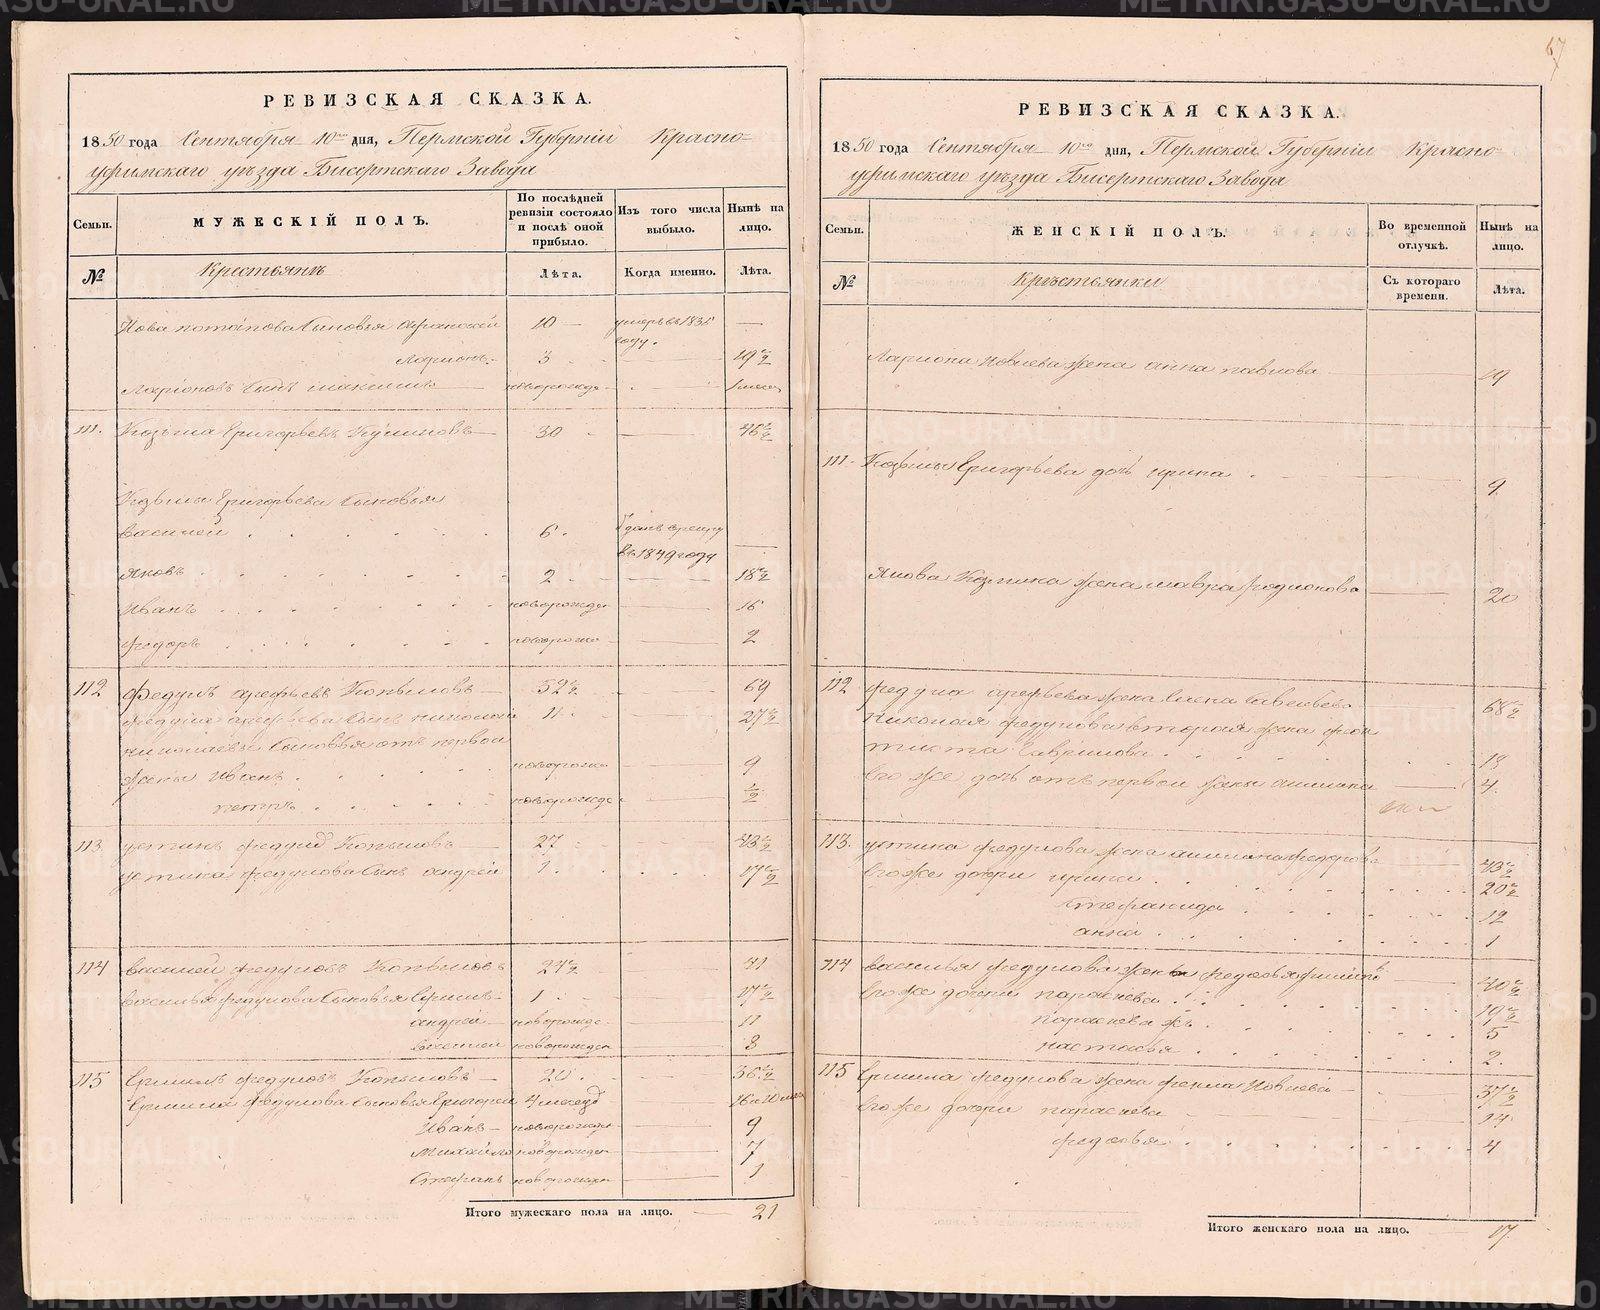 67
РЕВИЗСКАЯ СКАЗКА.
1850 года Сентября 10го дня, Пермской Губерніи Красно-
уфимскаго уѣзда Бисертскаго Завода
Семьи.
МУЖЕСКІЙ ПОЛЪ.
По послѣдней ревизіи состояло и послѣ оной прибыло.
Изъ того числа выбыло.
Нынѣ на лицо.
№
Крестьянъ
Лѣта.
Когда именно.
Лѣта.
Иова Потапова Сыновья 10 умеръ въ 1835 году. —
Ларионъ 3 — 19 ½
Ларіоновъ Сынъ Максимъ новорожде —
111. Козьма Григорьевъ 30 — 46 ½
Козьмы Григорьева Сыновья
Василей 6. въ 1849 году —
Яковъ 2 — 18 ½
Иванъ новорожден — 16
Федоръ новорожд — 2
112 Федулъ Арефьевъ Копыловъ 52 ½ — 69
Федула Арефьева Сынъ Николай 11. — 27 ½
Николаевы Сыновья отъ первой
жены Иванъ новорожд — 9
Петръ новорожде — ½
113. Устинъ Федул Копыловъ 27 — 43 ½
Устина Федулова Сынъ Андрей 1. 17 ½
114 Василей Федуловъ Копыловъ 24 ½ — 41
Василья Федулова Сыновья 1. — 17 ½
Андрей новорожде — 11
Василей новорожден — 3
115 Ермилъ Федуловъ Копыловъ 20. — 36 ½
Ермила Федулова Сыновья Григорей 4 месяц
Иванъ новорожден — 9
Михайло новорожден — 7
Стефанъ новорожден — 1
Итого мужескаго пола на лицо. — 21
РЕВИЗСКАЯ СКАЗКА.
1850 года Сентября 10го дня, Пермской Губерніи Красно-
уфимскаго уѣзда Бисертскаго Завода
Семьи.
ЖЕНСКІЙ ПОЛЪ.
Во временной отлучкѣ.
Нынѣ на лицо.
№
Крестьянки
Съ котораго времени.
Лѣта.
Лариона Иовлева жена Анна Павлова — 19
111. Козьмы Григорьева дочь Ирина — 9
Якова Козмина жена Мавра Родионова — 20
112 Федула Арефьева жена Елена Савельева 68 ½
Николая Федулова вторая жена Фео
тиста Гаврилова
Его же дочь отъ первой жены — 4.
113. Устина Федулова жена Федорова 43 ½
Его же дочери Ирина 20 ½
Стефанида 12
Анна 1
114 Василья Федулова жена Федосья 40 ½
Его же дочери Парасковья 19 ½
Парасковья жъ 5
Настасья 2.
115 Ермила Федулова жена Фекла Иовлева — 37 ½
Его же дочери Парасковья — 14
Федосья 4
Итого женскаго пола на лицо. — 17
METRIKI.GASO-URAL.RU